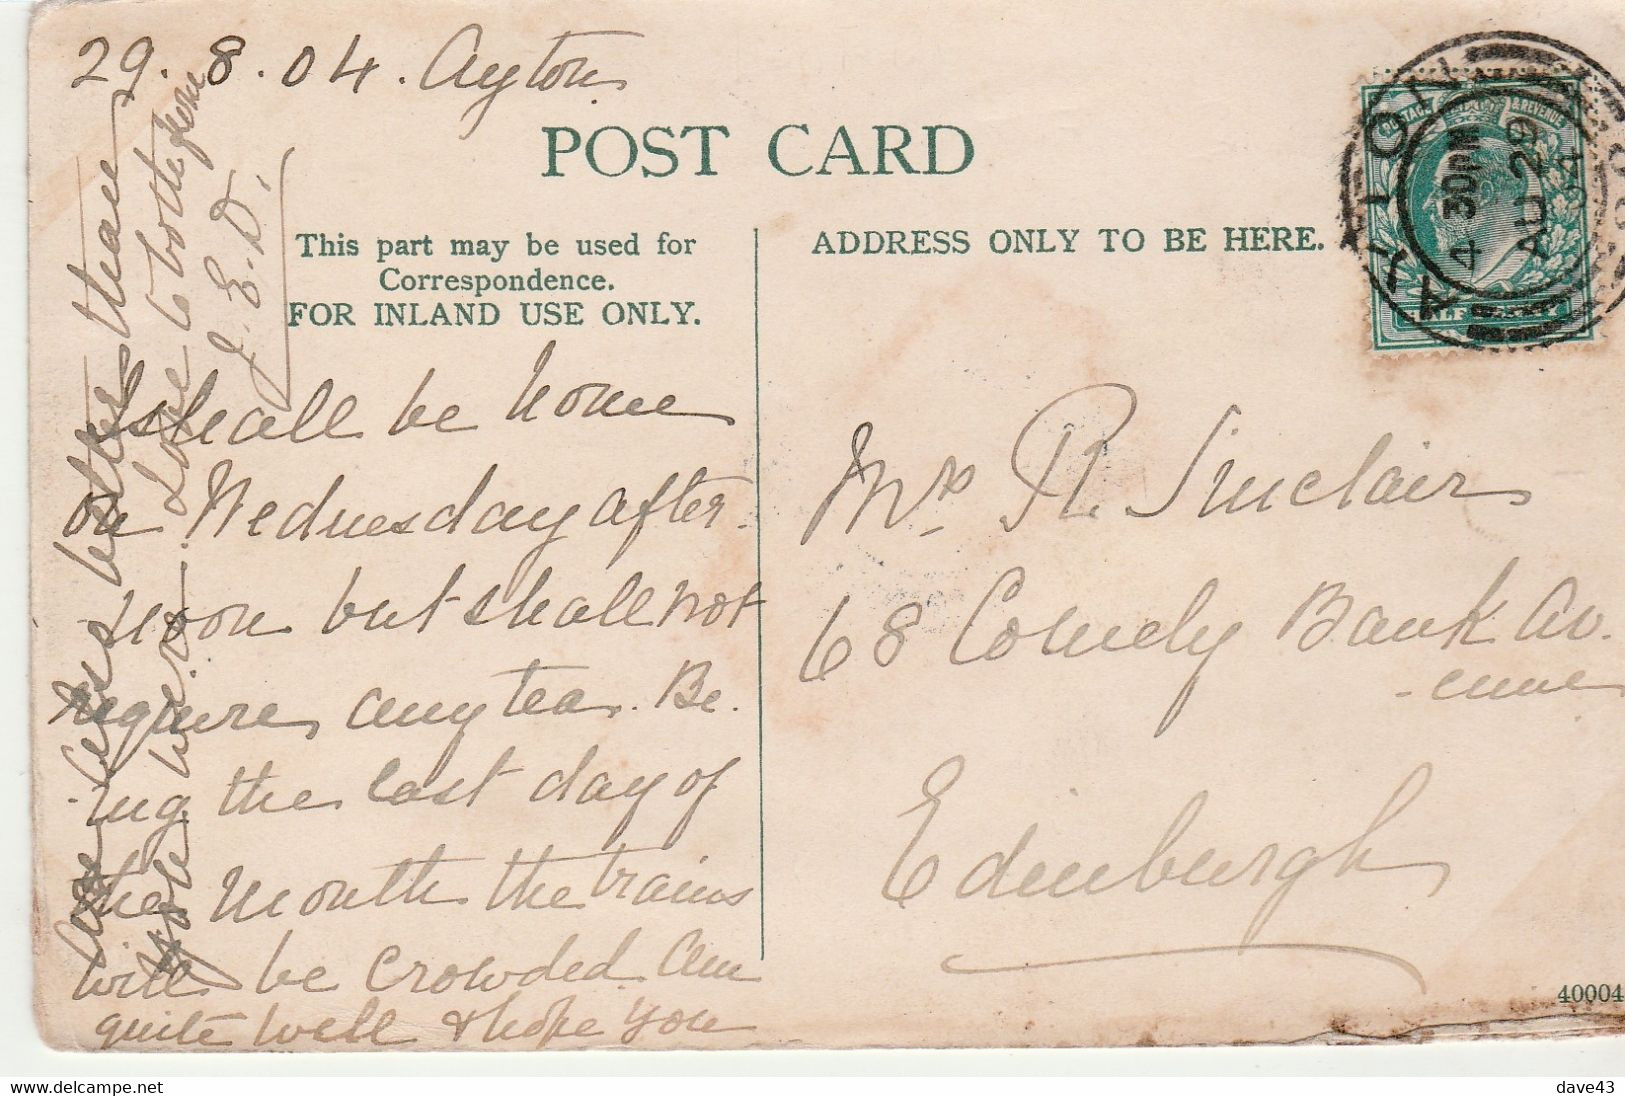 29.8.04. Ayton
POST CARD
This part may be used for
Correspondence.
FOR INLAND USE ONLY.
ADDRESS ONLY TO BE HERE.
POSTAGE & REVENUE
HALF PENNY
AYTON
4-30PM
AU 29
04
I shall be home
on Wednesday after-
noon but shall not
require any tea. Be-
-ing the last day of
the month the trains
will be crowded. Am
quite well & hope you
are better than
you were. Love to both from
J. E. D.
Mrs. R. Sinclair
68 Comely Bank Av-
-enue
Edinburgh
40004
delcampe.net
dave43